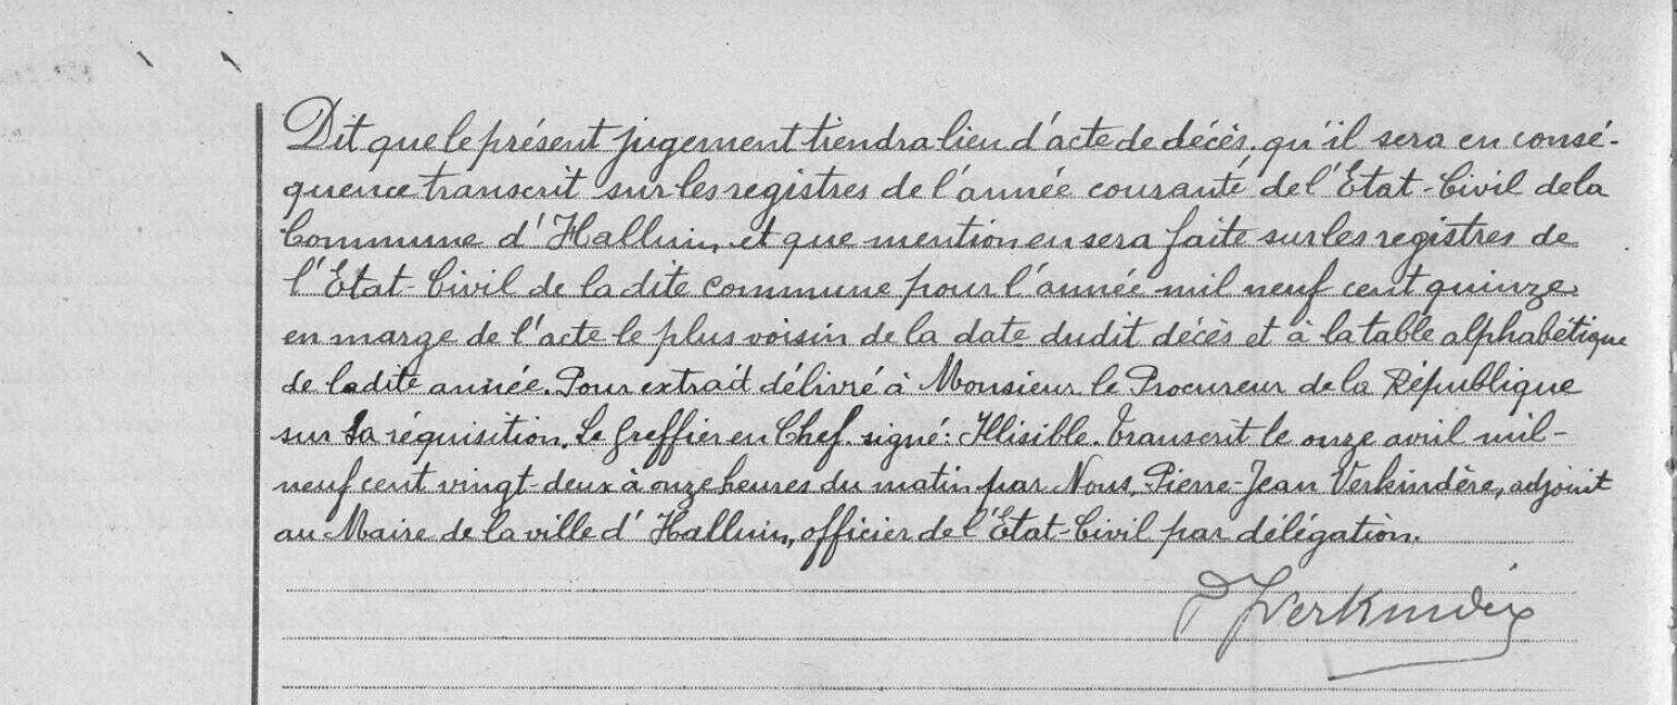 Dit que le présent jugement tiendra lieu d'acte de décès, qu'il sera en consé-
quence transcrit sur les registres de l'année courante de l'Etat-Civil de la
Commune d'Halluin, et que mention en sera faite sur les registres de
l'Etat-Civil de la dite commune pour l'année mil neuf cent quinze
en marge de l'acte le plus voisin de la date dudit décès et à la table alphabétique
de ladite année. Pour extrait délivré à Monsieur le Procureur de la République
sur sa réquisition. Le Greffier en Chef. signé: Illisible. Transcrit le onze avril mil-
neuf cent vingt-deux à onze heures du matin par Nous, Pierre-Jean Verkindère, adjoint
au Maire de la ville d'Halluin, officier de l'Etat-Civil par délégation.
P J Verkindère